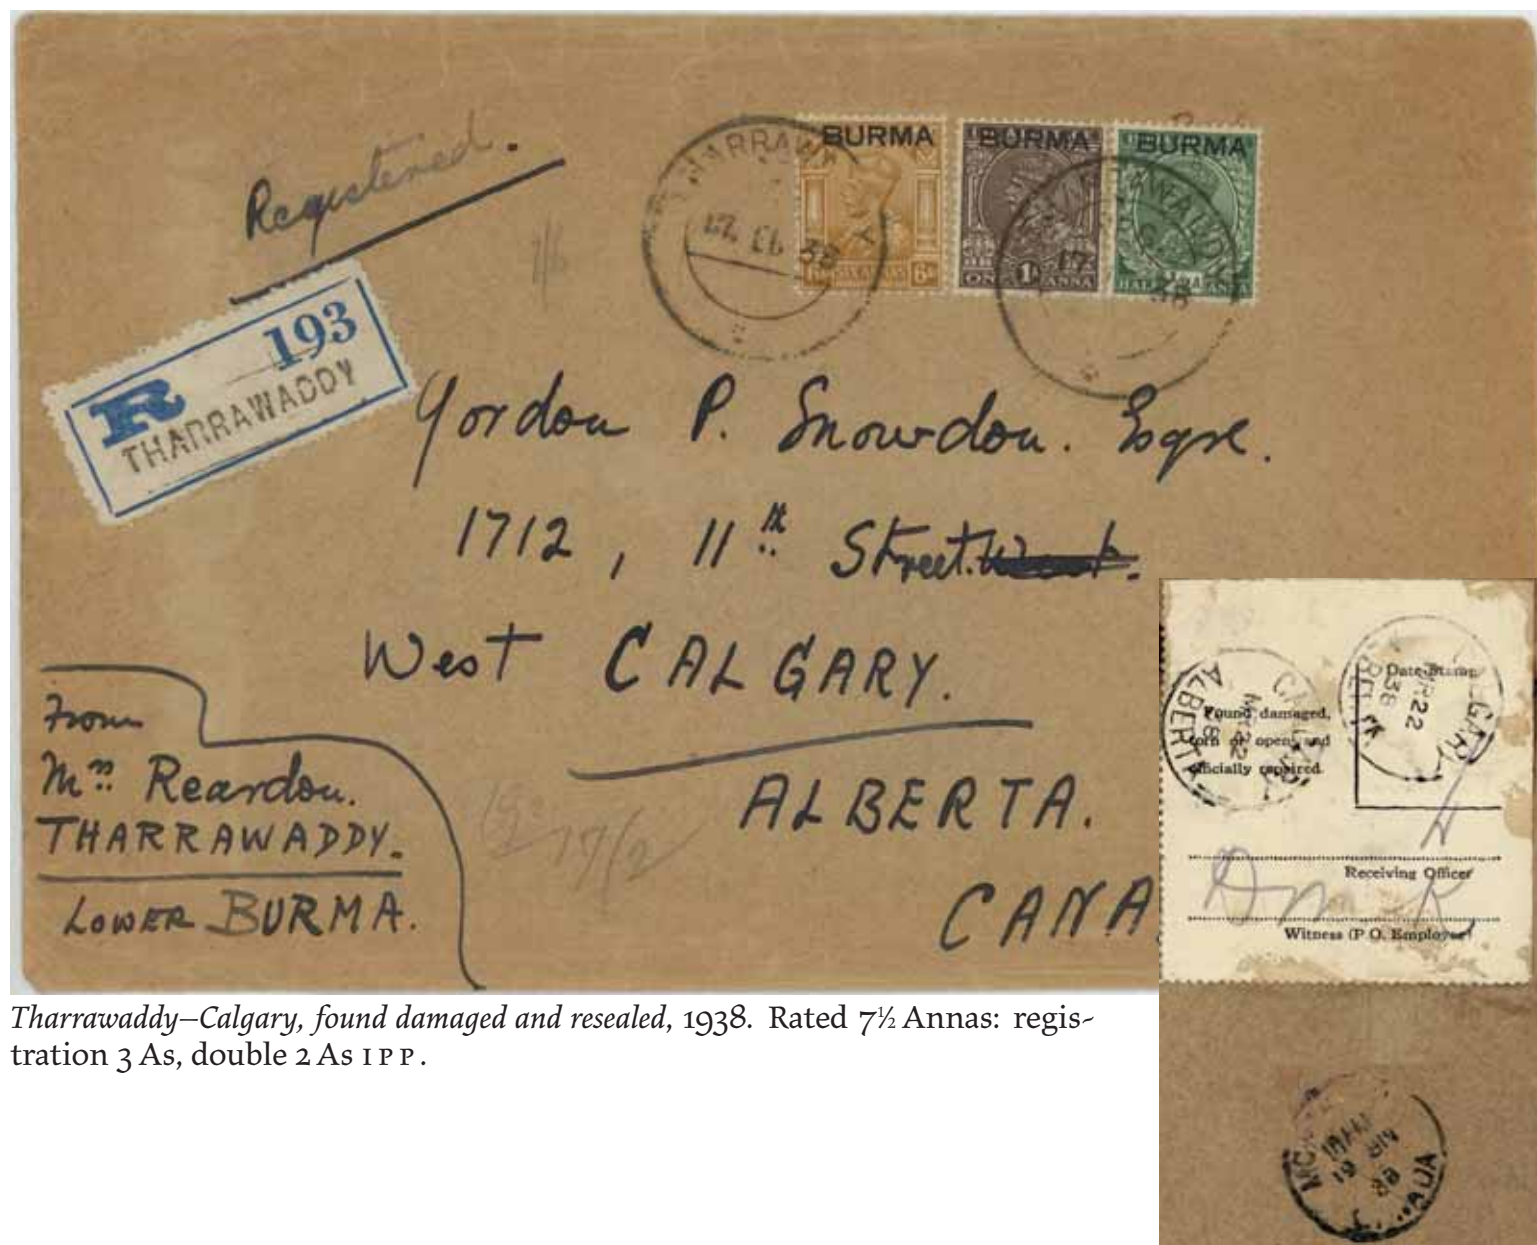 Registered.
R 193
THARRAWADDY
THARRAWADDY
17 FE 38
BURMA
BURMA
BURMA
6As SIX ANNAS 6As
ONE 1A ANNA
HALF ½A ANNA
17
38
Gordon P. Snowdon. Esqre.
1712, 11th Street.
West CALGARY.
ALBERTA.
CANA
From
Mrs Reardon.
THARRAWADDY.
LOWER BURMA.
17/2
CALGARY
ALBERTA
22
38
CALGARY
22
38
Date Stamp
Found damaged,
torn or open, and
officially repaired.
Receiving Officer
Witness (P.O. Employee)
19
38
Tharrawaddy—Calgary, found damaged and resealed, 1938. Rated 7½ Annas: regis-
tration 3 As, double 2 As IPP.